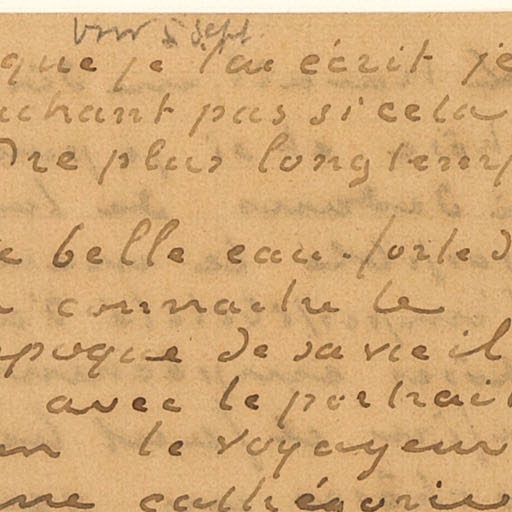 5 sept
que je l'ai écrit je
achant pas si cela
dre plus longtemp
e belle eau-forte d
connaitre le
epoque de sa vie il
avec le portrait
le voyageur
ne cathégorie